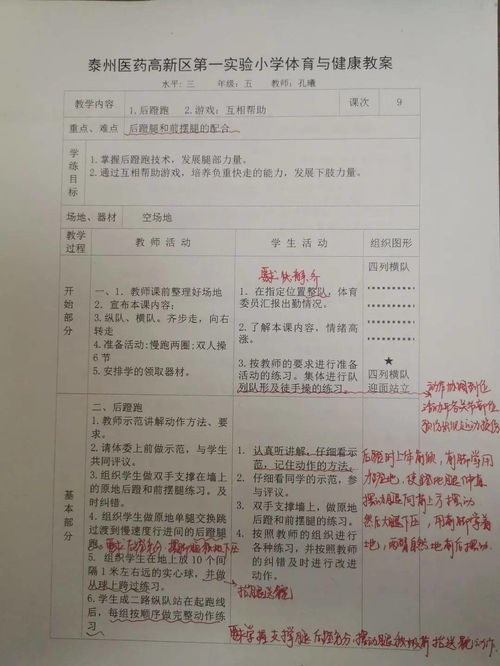 泰州医药高新区第一实验小学体育与健康教案
水平:三 年级:五 教师:孔曦
教学内容 1.后蹬跑 2.游戏:互相帮助 课次 9
重点、难点 后蹬腿和前摆腿的配合
学练目标
1.掌握后蹬跑技术,发展腿部力量。
2.通过互相帮助游戏,培养负重快走的能力,发展下肢力量。
场地、器材 空场地
教学过程 教师活动 学生活动 组织图形
开始部分
一、1. 教师课前整理好场地
2. 宣布本课内容:
3. 纵队、横队。齐步走,向右
转走
4. 准备活动:慢跑两圈;双人操
6节
5. 安排学的领取器材。
1. 在指定位置整队,体育
委员汇报出勤情况。
2.了解本课内容,情绪高
涨。
3.按教师的要求进行准备
活动的练习。集体进行队
列队形及徒手操的练习。
四列横队
★
四列横队
迎面站立
基本部分
二、后蹬跑
1. 教师示范讲解动作方法、要
求。
2. 请体委上前做示范,与学生
共同评议。
3. 组织学生做双手支撑在墙上
的原地后蹬和前摆腿练习。及
时纠错。
4. 组织学生做原地单腿交换跳
过渡到慢速度行进间的后蹬腿
跑。
5. 组织学生在地上放10个间
隔1米左右远的实心球,并做
从球上跨过练习。
6. 学生成二路纵队站在起跑线
后,每组按顺序做完整动作练
习
1. 认真听讲解,仔细看示
范,记住动作的方法。
2. 仔细看同学的示范,参
与评议。
3. 双手支撑墙上,做原地
后蹬和前摆腿的练习。
4. 按照教师的组织进行
各种练习,并按照教师
的纠错及时进行改进
动作。
后蹬时上体前倾,前脚掌用
力蹬地,使蹬地腿伸直
摆动腿向前上方摆动
然后大腿下压,用前脚掌着
地,两臂自然地前后摆动。